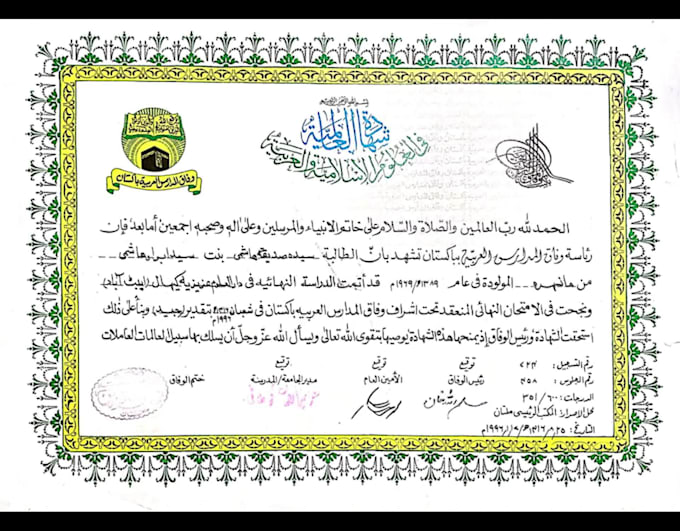 بسم الله الرحمن الرحيم
شهادة العالمية
في العلوم الاسلامية والعربية
وفاق المدارس العربية پاکستان
الحمد لله ربّ العالمين والصّلاة والسّلام على خاتم الأنبياء والمرسلين وعلى اله وصحبه اجمعين أما بعد فإن
رئاسة وفاق المدارس العربية بباكستان تشهد بأنّ الطالبة سيده صديقه هاشمي بنت سيد ابراهيم هاشمي
من مانهره المولودة في عام ١٣٨٩ھ/١٩٦٩م قد أتمت الدراسة النهائية في دار العلوم عزيزيه كيهال (ايبٹ آباد)
ونجحت في الامتحان النهائي المنعقد تحت اشراف وفاق المدارس العربيه باكستان في شعبان بتقدير (جيد) وبناً على ذلك
استحقت الشهادة ورئيس الوفاق إذ يمنحها هذه الشهادة يوصيها بتقوى الله تعالى ويسأل الله عزّ وجلّ أن يسلك بها سبيل العالمات العاملات
رقم التسجيل : ٧٢٤ توقيع توقيع توقيع
رقم الجلوس : ٤٥٨ رئيس الوفاق الأمين العام مدير الجامعة/المدرسة ختم الوفاق
الدرجات : ٣٥١/٦٠٠
محل الاصدار: المكتب الرئيسي ملتان
التاريخ: ٢٥/٨/١٤١٦ھ ١٧/١/١٩٩٦م